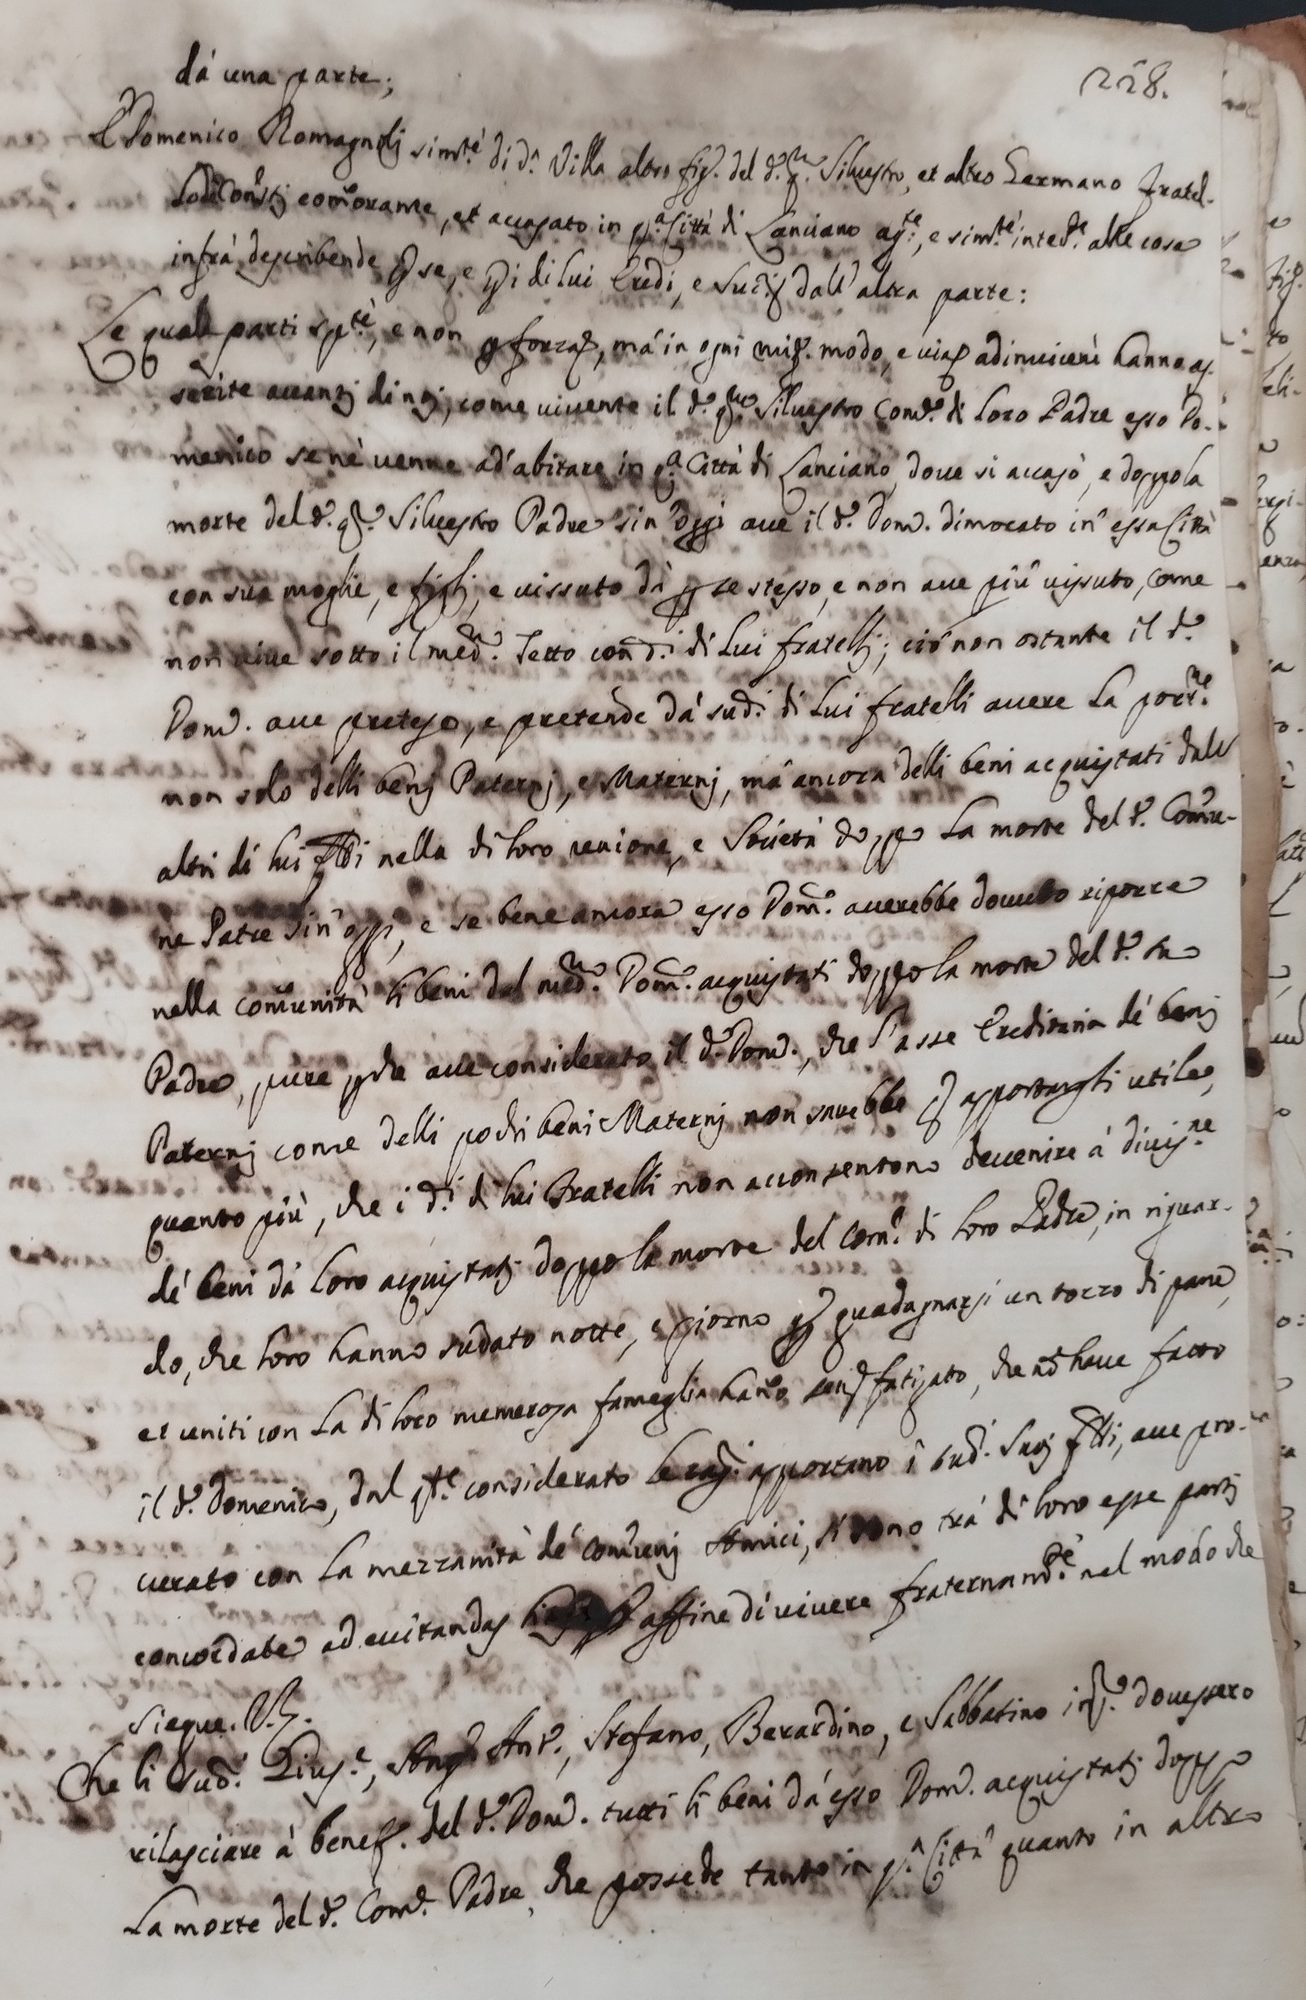 228.
dà una parte;
E Domenico Romagnolj simte di da Villa altro fig. del d. qm Silvestro, et altro Germano fratel-
commorante, et accasato in qa Città di Lanciano agte, e simte intedte alle cose
infrà describende p se, e p i di lui Eredi, e Sucri dall'altra parte:
Le quali parti spte, e non p forza, mà in ogni migr. modo, e via adinvicem hanno as-
serite avantj di noj, come vivente il d. qm Silvestro Comn. di loro Padre esso Do-
menico se nè venne ad abitare in qa Città di Lanciano, dove si accasò, e doppo la
morte del d. qm Silvestro Padre sin'oggi ave il d. Domco. dimorato in essa Città
con sua moglie, e figlj, e vissuto dà p se stesso, e non ave più vissuto, come
non vive sotto il medmo. Tetto con di di lui fratellj; ciò non ostante il d.
Domco. ave preteso, e pretende dà sudi di lui fratelli avere la porne
non solo delli benj Paternj, e Maternj, mà ancora delli beni acquistati dalli
altri di lui flli nella di loro unione, e Società doppo la morte del d. Comu-
ne Patre sin'oggi, e se bene ancora esso Domco. averebbe dovuto riporre
nella comunità li beni dal medmo. Domco. acquistati doppo la morte del d. suo
Padre, pure pche ave considerato il d. Domco., che l'asse Ereditaria dè benj
Paternj come delli pochi beni Maternj non sarebbe p apportargli utile,
quanto più, che i di di lui Fratelli non acconsentono devenire à divisne
dè beni dà loro acquistatj doppo la morte del Comn. di loro Padre, in riguar-
do, che loro hanno sudato notte, e giorno p guadagnarsi un tozzo di pane,
et uniti con la di loro numerosa fameglia hanno semp fatigato, che nō have fatto
il d. Domenico, dal pte considerato le ragi. apportano i sudi. Suoj flli, ave pro-
curato con la mezzanità dè comunj Amici, si sono trà di loro esse partj
concordate ad evitandas p affine di vivere fraternamte nel modo che
siegue. V.z.
Che li sudi. Giuse, Angel Ant., Stefano, Berardino, e Sabbatino in pmo. dovessero
rilasciare à benef. del d. Domco. tutti li beni dà esso Domco. acquistatj doppo
la morte del d. Comn. Padre, che possede tanto in qa Città quanto in altro